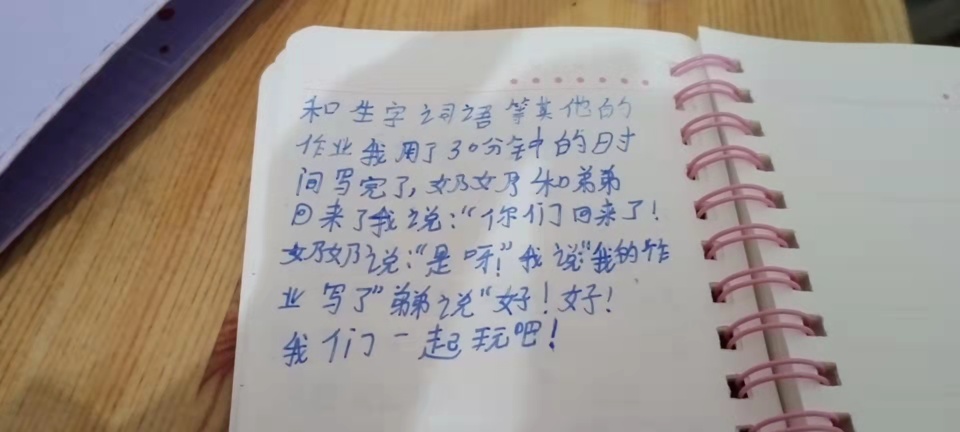 和生字词语等其他的
作业我用了30分钟的时
间写完了,奶奶和弟弟
回来了我说:“你们回来了!
奶奶说:“是呀!”我说“我的作
业写了”弟弟说“好!好!
我们一起玩吧!